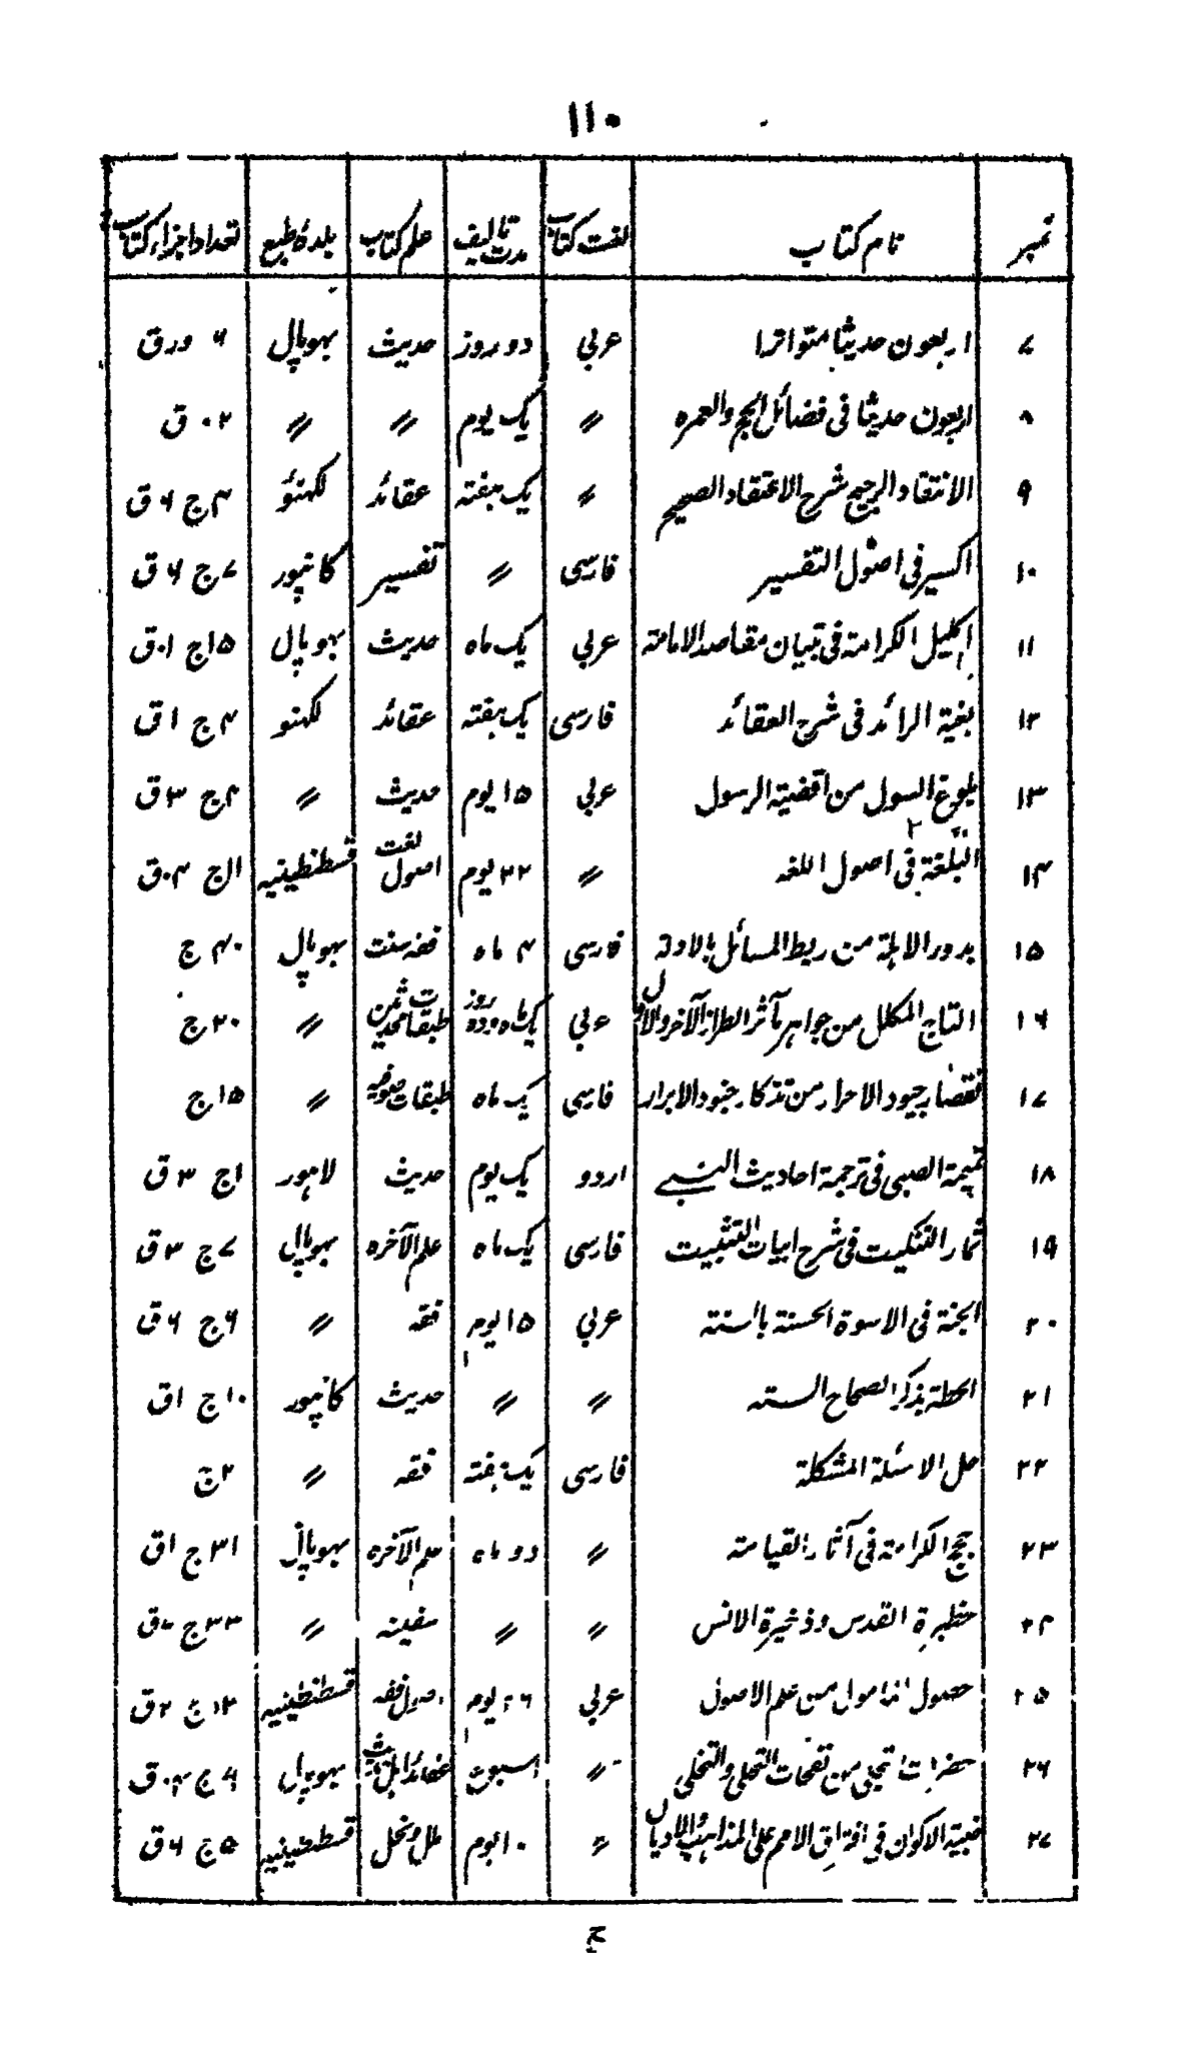 ۱۱۰
نمبر | نام کتاب | لغت کتاب | مدت تالیف | علم کتاب | بلدۂ طبع | تعداد اجزاء کتاب
۷ | اربعون حدیثا متواترا | عربی | دو روز | حدیث | بھوپال | ۶ ورق
۸ | اربعون حدیثا فی فضائل الحج والعمرہ | 〃 | یک یوم | 〃 | 〃 | ۲۰ ق
۹ | الانتقاد الرجیح شرح الاعتقاد الصحیح | 〃 | یک ہفتہ | عقائد | لکہنؤ | ۴ج ۶ق
۱۰ | اکسیر فی اصول التفسیر | فارسی | 〃 | تفسیر | کانپور | ۷ج ۶ق
۱۱ | اکلیل الکرامۃ فی تبیان مقاصد الامامۃ | عربی | یک ماہ | حدیث | بھوپال | ۱۵ج ۱۰ق
۱۲ | بغیۃ الرائد فی شرح العقائد | فارسی | یک ہفتہ | عقائد | لکہنو | ۴ج ۱ق
۱۳ | بلوغ السول من اقضیۃ الرسول | عربی | ۱۵ یوم | حدیث | 〃 | ۴ج ۳ق
۱۴ | البلغۃ فی اصول اللغہ | 〃 | ۲۲ یوم | اصول لغت | قسطنطینیہ | ۱۱ج ۴۰ق
۱۵ | بدور الاہلۃ من ربط المسائل بالادلۃ | فارسی | ۴ ماہ | فقہ سنت | بھوپال | ۴۰ ج
۱۶ | التاج المکلل من جواہر مآثر الطراز الآخر والاول | عربی | یک ماہ و دو روز | طبقات محدثین | 〃 | ۲۰ ج
۱۷ | تقصار جیود الاحرار من تذکار جنود الابرار | فارسی | یک ماہ | طبقات صوفیہ | 〃 | ۱۵ج
۱۸ | تمیمۃ الصبی فی ترجمۃ احادیث النبی | اردو | یک یوم | حدیث | لاہور | ۱ج ۳ق
۱۹ | ثمار التنکیت فی شرح ابیات التثبیت | فارسی | یک ماہ | علم الآخرہ | بھوپال | ۷ج ۳ق
۲۰ | الجنۃ فی الاسوۃ الحسنۃ بالسنۃ | عربی | ۱۵ یوم | فقہ | 〃 | ۶ج ۶ق
۲۱ | الحطۃ بذکر الصحاح الستہ | 〃 | 〃 | حدیث | کانپور | ۱۰ج ۱ق
۲۲ | حل الاسئلۃ المشکلۃ | فارسی | یک ہفتہ | فقہ | 〃 | ۲ج
۲۳ | حجج الکرامۃ فی آثار القیامۃ | 〃 | دو ماہ | علم الآخرہ | بھوپال | ۳۱ج ۱ق
۲۴ | حظیرۃ القدس وذخیرۃ الانس | 〃 | 〃 | سفینہ | 〃 | ۳۳ج ۷ق
۲۵ | حصول المامول من علم الاصول | عربی | ۲۶ یوم | اصول فقہ | قسطنطینیہ | ۱۲ج ۲ق
۲۶ | حضرات التجلی من نفحات التحلی والتخلی | 〃 | اسبوع | عقائد اہل حدیث | بھوپال | ۶ج ۴۰ق
۲۷ | خبیئۃ الاکوان فی افتراق الامم علی المذاہب والادیان | 〃 | ۱۰ یوم | ملل ونحل | قسطنطینیہ | ۵ج ۶ق
ج